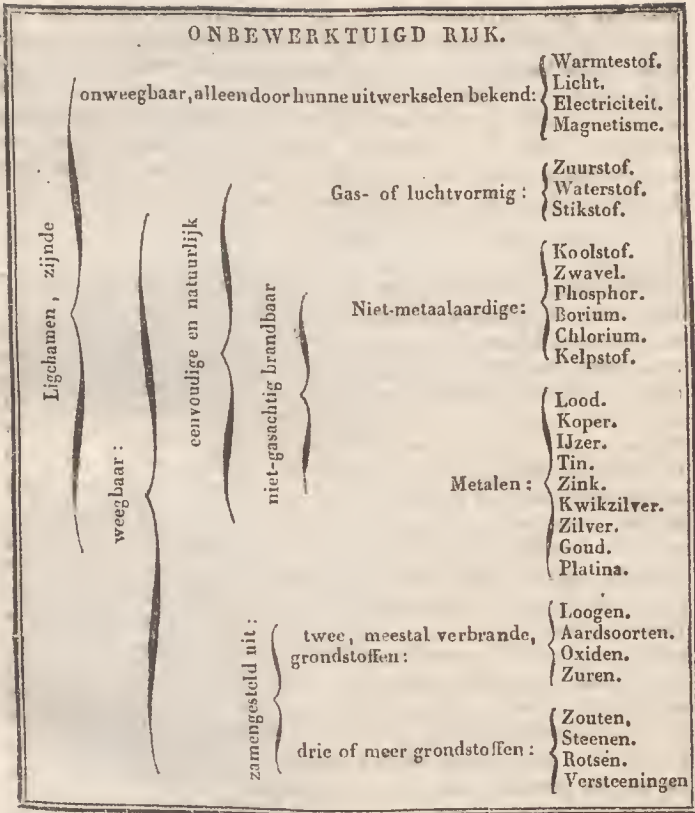 ONBEWERKTUIGD RIJK.
Ligchamen, zijnde
onweegbaar, alleen door hunne uitwerkselen bekend:
Warmtestof.
Licht.
Electriciteit.
Magnetisme.
weegbaar:
eenvoudige en natuurlijk
Gas- of luchtvormig:
Zuurstof.
Waterstof.
Stikstof.
niet-gasachtig brandbaar
Niet-metaalaardige:
Koolstof.
Zwavel.
Phosphor.
Borium.
Chlorium.
Kelpstof.
Metalen:
Lood.
Koper.
IJzer.
Tin.
Zink.
Kwikzilver.
Zilver.
Goud.
Platina.
zamengesteld uit:
twee, meestal verbrande,
grondstoffen:
Loogen.
Aardsoorten.
Oxiden.
Zuren.
drie of meer grondstoffen:
Zouten,
Steenen.
Rotsen.
Versteeningen